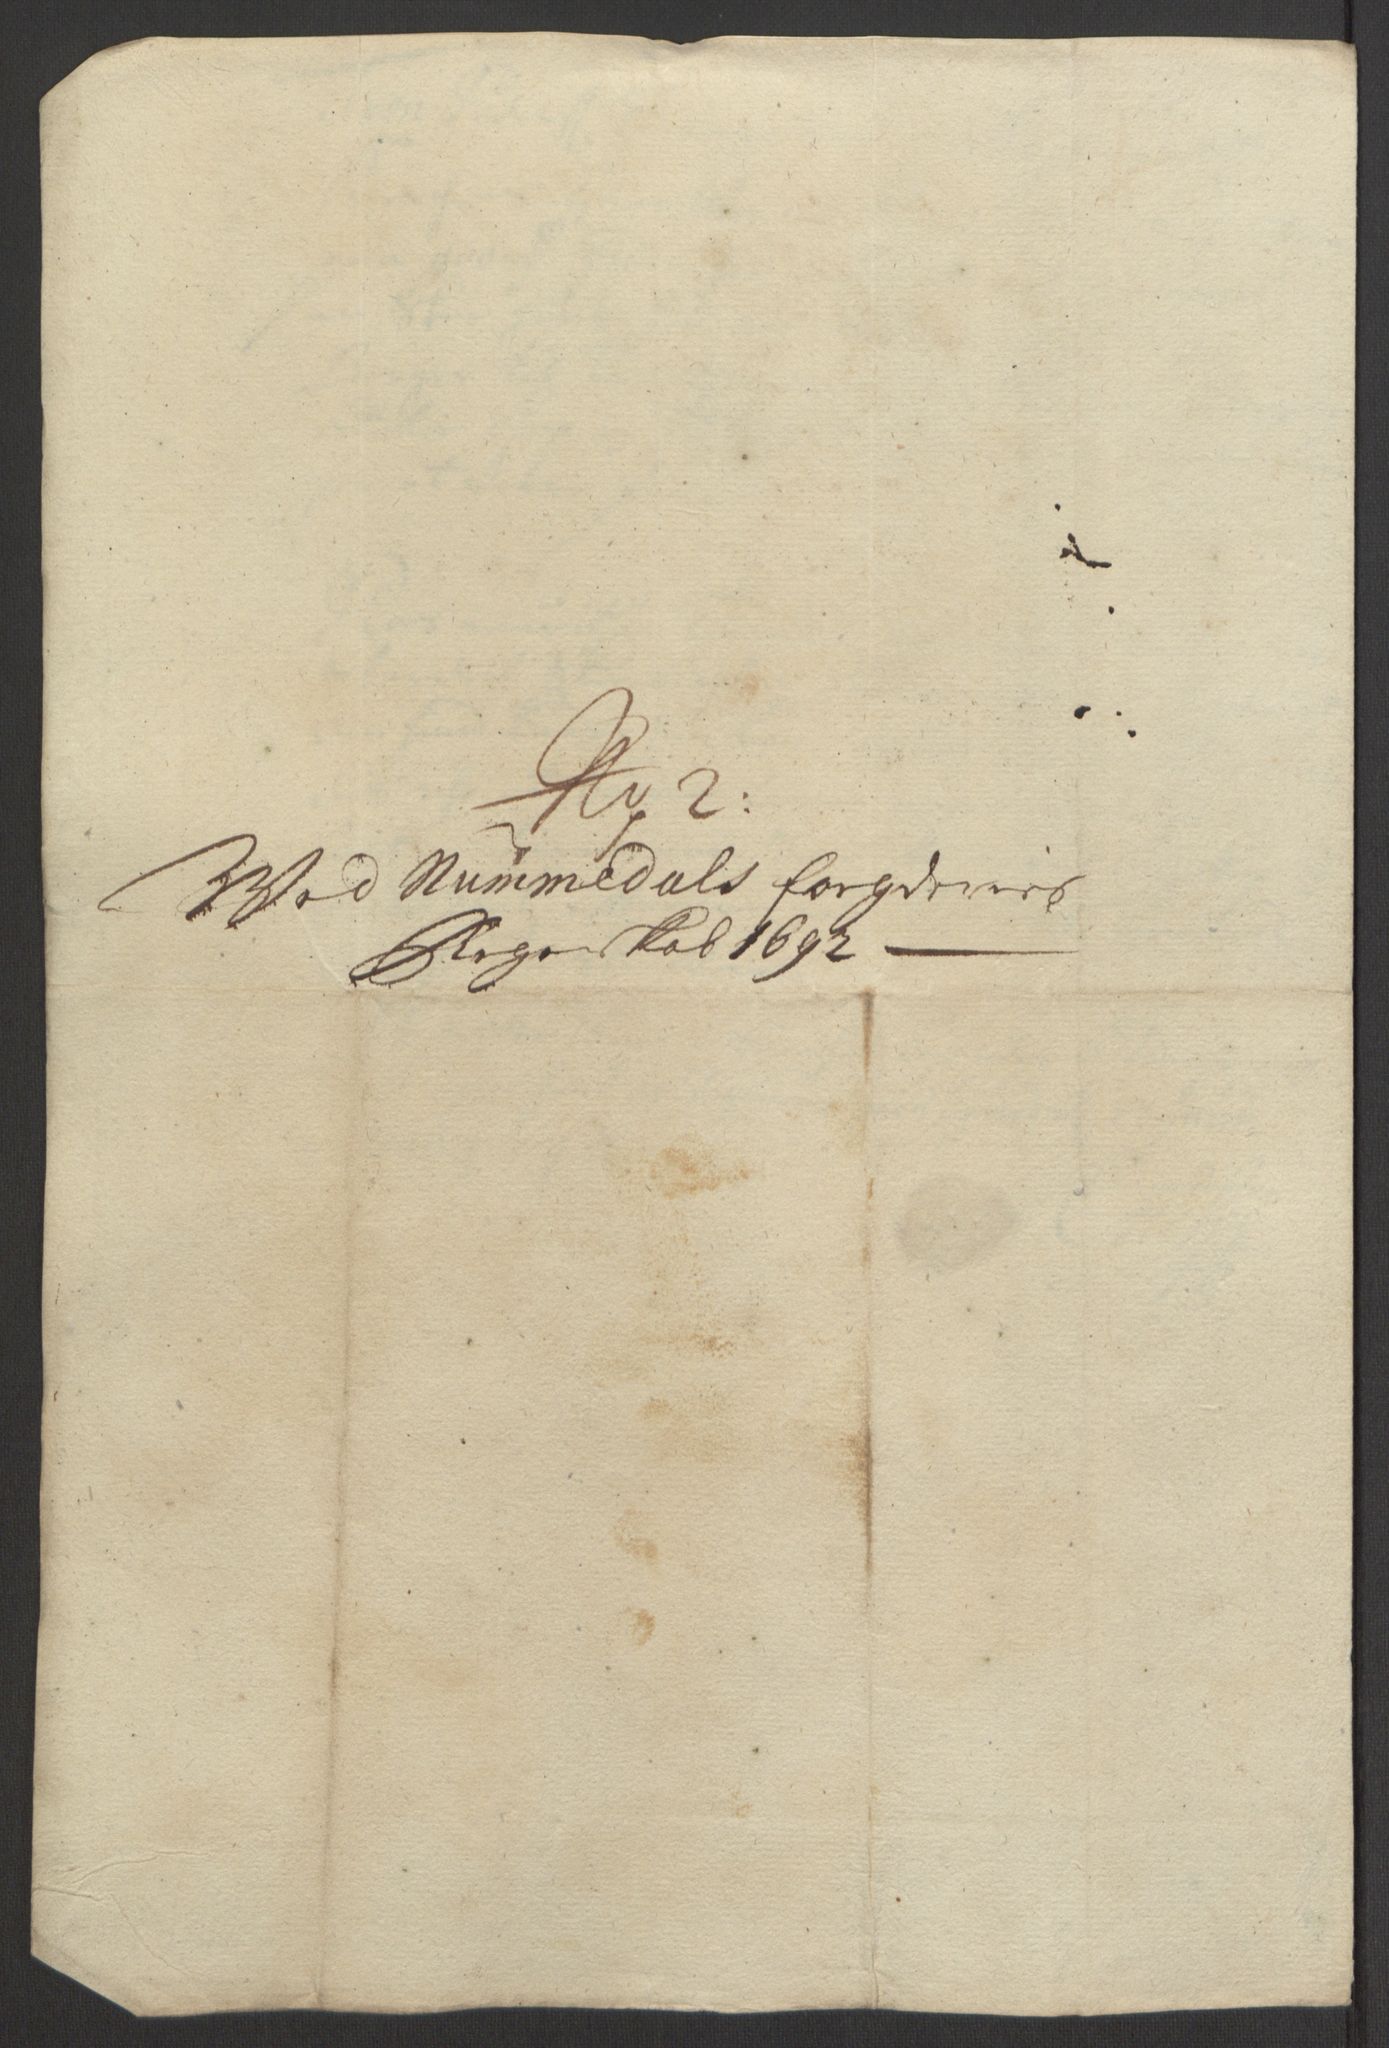 No 2:
Wed Nummedals fougderies
Regenskab 1692